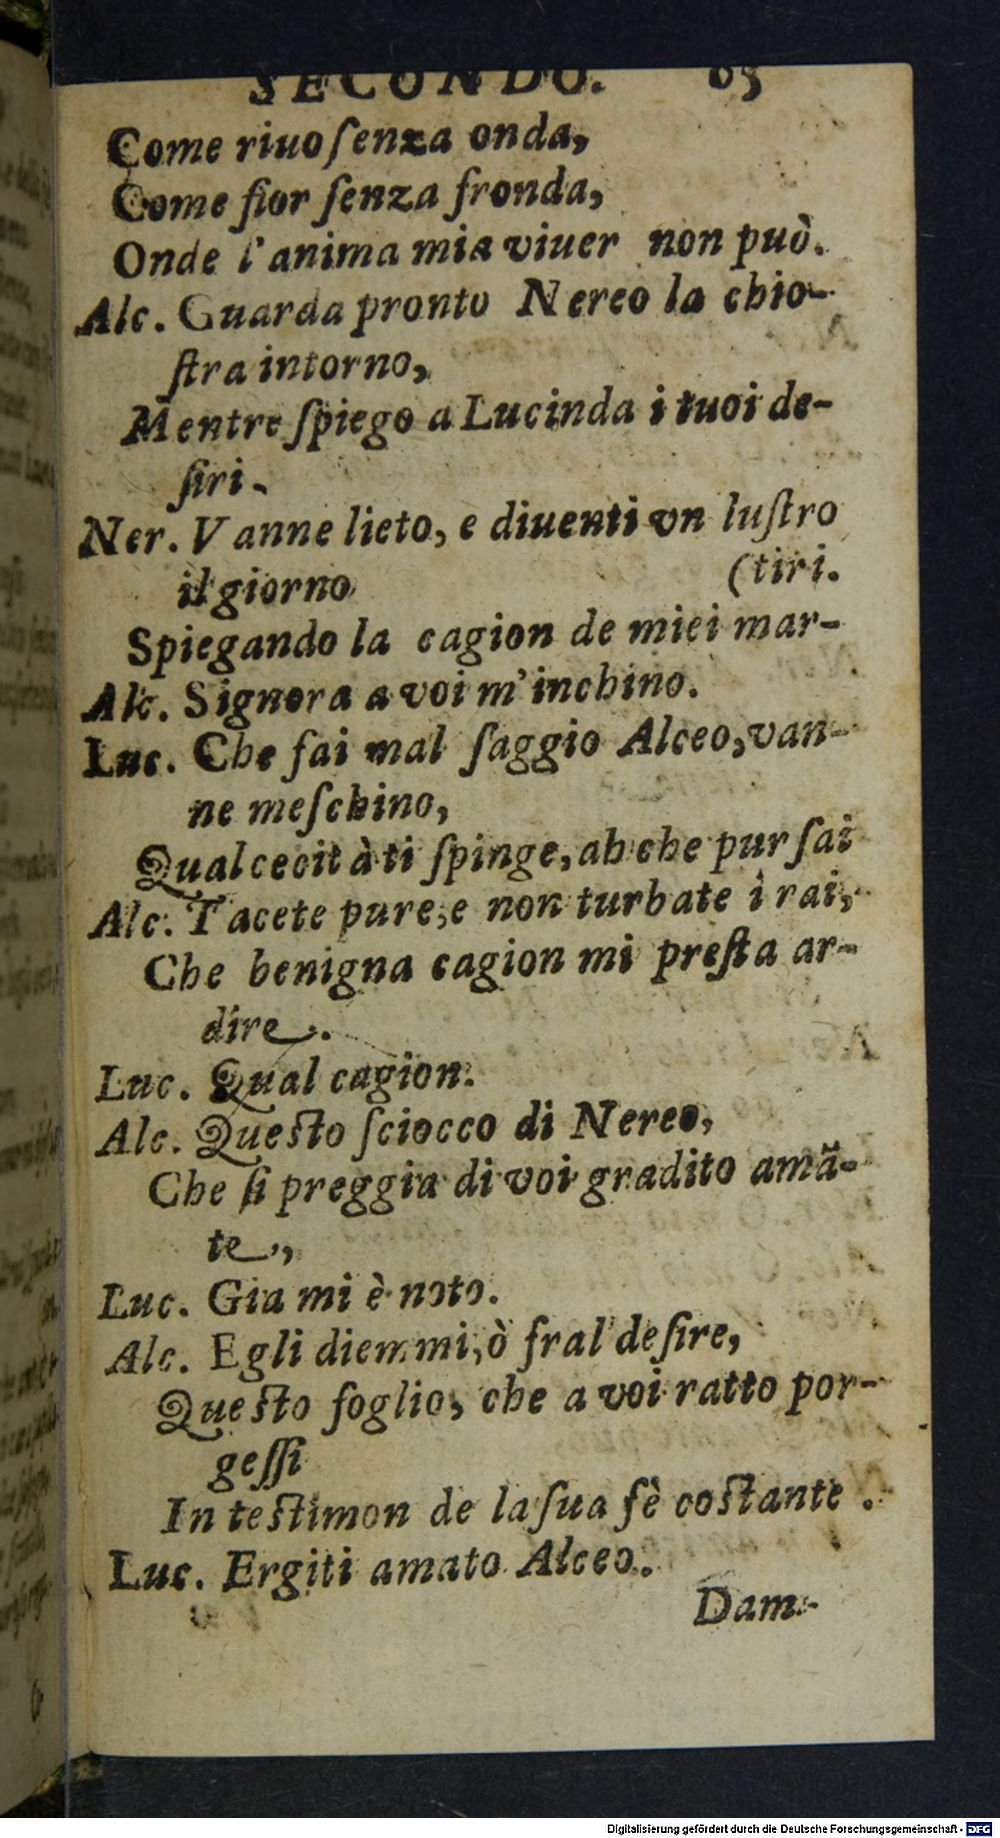 SECONDO. 65
Come riuo ſenza onda,
Come fior ſenza fronda,
Onde l'anima mia viuer non può.
Alc. Guarda pronto Nereo la chio-
ſtra intorno,
Mentre ſpiego a Lucinda i tuoi de-
ſiri.
Ner. Vanne lieto, e diuenti vn luſtro
il giorno (tiri.
Spiegando la cagion de miei mar-
Alc. Signora a voi m'inchino.
Luc. Che fai mal ſaggio Alceo, van-
ne meſchino,
Qual cecità ti ſpinge, ah che pur ſai
Alc. Tacete pure, e non turbate i rai,
Che benigna cagion mi preſta ar-
dire.
Luc. Qual cagion.
Alc. Queſto ſciocco di Nereo,
Che ſi preggia di voi gradito amã-
te,
Luc. Gia mi è noto.
Alc. Egli diemmi, ò fral deſire,
Queſto foglio, che a voi ratto por-
geſſi
In teſtimon de la ſua fè coſtante.
Luc. Ergiti amato Alceo.
Dam-
Digitalisierung gefördert durch die Deutsche Forschungsgemeinschaft - DFG